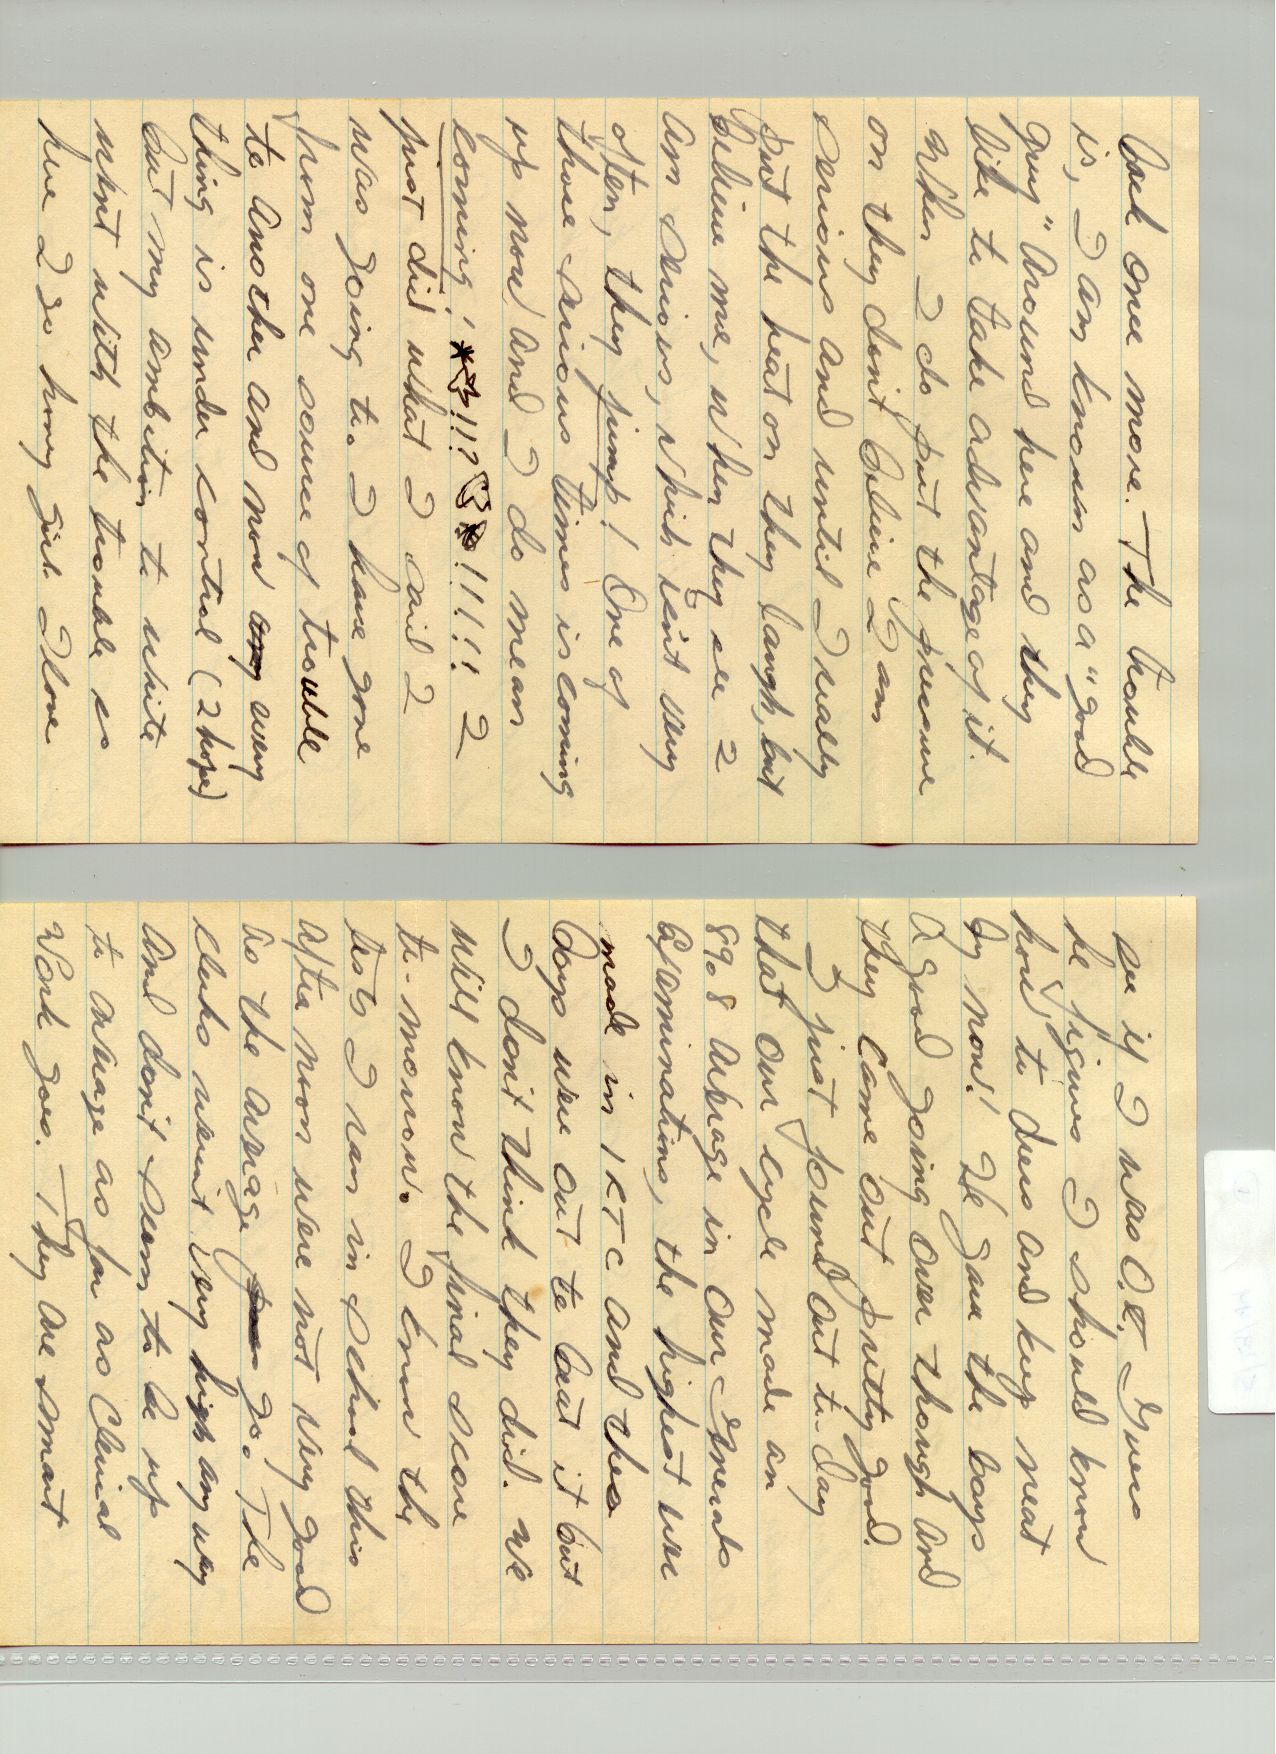 look once more. The trouble
is, I am known as a "good
guy" around here and they
like to take advantage of it.
When I do put the pressure
on they don't believe I am
serious and until I really
put the heat on they laugh, but
Believe me, when they see I
am serious, which isn't very
often, they jump! One of
those serious times is coming
up now and I do mean
coming! *!!?*!!!!! I
just did what I said I
was going to. I have gone
from one source of trouble
to another and now every
thing is under control (I hope)
But my ambition to write
went with the trouble so
here I go honey girl. I love
see if I was O.K. Guess
he figures I should know
how to dress and keep neat
by now! He gave the boys
a good going over though and
they came out pretty good.
I just found out to-day
that our cycle made an
89.8 average in our Generals
Examinations, the highest ever
made in 1 R T C and the
boys were out to beat it but
I don't think they did. We
will know the final score
to-morrow. I know the
tests I ran in school this
after noon were not very good
as the average go. The
clerks weren't very high any way
and don't seem to be up
to average as far as Clerical
Work goes. They are smart